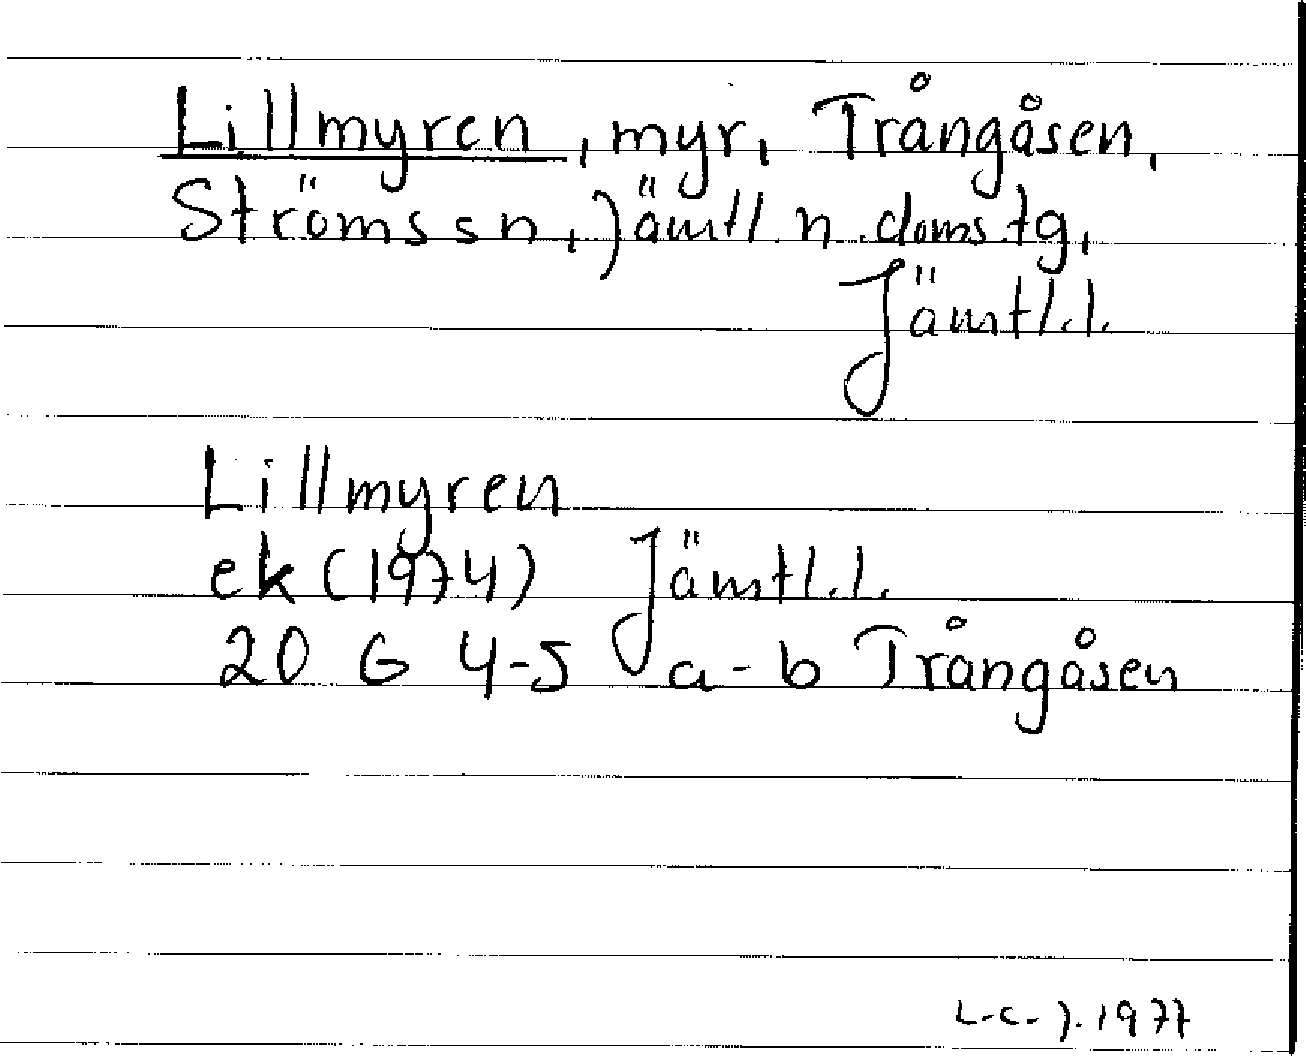 Lillmyren, myr, Trångåsen,
Ströms sn, Jämtl. n. doms.tg,
Jämtl.l.
Lillmyren
ek (1974) Jämtl.l.
20 G 4-5 a-b Trångåsen
L-C- J. 1977